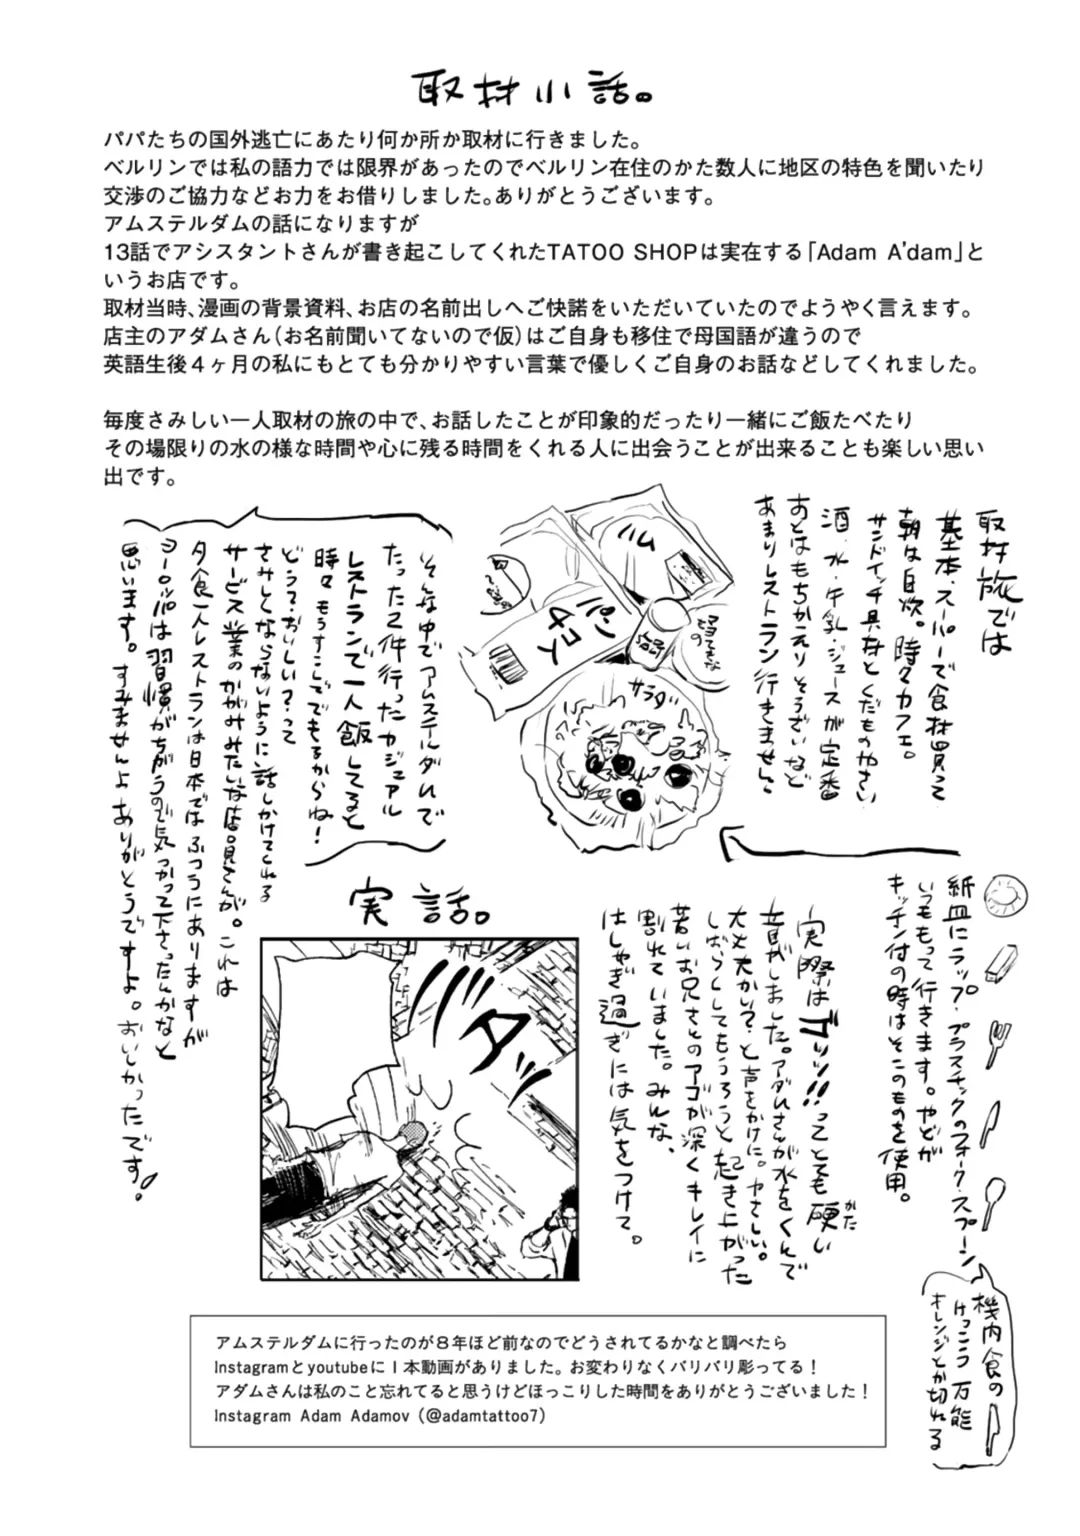 取材小話。
パパたちの国外逃亡にあたり何か所か取材に行きました。
ベルリンでは私の語力では限界があったのでベルリン在住のかた数人に地区の特色を聞いたり
交渉のご協力などお力をお借りしました。ありがとうございます。
アムステルダムの話になりますが
13話でアシスタントさんが書き起こしてくれたTATOO SHOPは実在する「Adam A'dam」と
いうお店です。
取材当時、漫画の背景資料、お店の名前出しへご快諾をいただいていたのでようやく言えます。
店主のアダムさん（お名前聞いてないので仮）はご自身も移住で母国語が違うので
英語生後４ヶ月の私にもとても分かりやすい言葉で優しくご自身のお話などしてくれました。
毎度さみしい一人取材の旅の中で、お話したことが印象的だったり一緒にご飯たべたり
その場限りの水の様な時間や心に残る時間をくれる人に出会うことが出来ることも楽しい思い
出です。
取材旅では
基本・スーパーで食材買って
朝は自炊。時々カフェ。
サンドイッチ具材とくだものやさい
酒・水・牛乳・ジュースが定番
あとはもちかえりそうざいなど
あまりレストラン行きません。
ハム
パン
4コ入
サラダ
紙皿にラップ・プラスチックのフォーク・スプーン
いつももって行きます。やどが
キッチン付の時はそこのものを使用。
機内食の
けっこう万能
オレンジとか切れる
そんな中でアムステルダムで
たった2件行ったカジュアル
レストランで一人飯してると
時々もうすこしでてるからね！
どうて・おいしい？って
さみしくならないように話しかけてくれる
サービス業のかがみみたいな店員さんが。これは
夕食一人レストランは日本ではふつうにありますが
ヨーロッパは習慣がちがうので気つかって下さったんかなと
思います。すみませんよありがとうですよ。おいしかったです！
実話。
実際はゴリッ!!ってとても硬い
かた
音がしました。アダムさんが水をくんで
大丈夫かい？と声をかけに。やさしい。
しばらくしてもうろうと起き上がった
若いお兄さんのアゴが深くキレイに
割れていました。みんな、
はしゃぎ過ぎには気をつけて。
アムステルダムに行ったのが８年ほど前なのでどうされてるかなと調べたら
Instagramとyoutubeに１本動画がありました。お変わりなくバリバリ彫ってる！
アダムさんは私のこと忘れてると思うけどほっこりした時間をありがとうございました！
Instagram Adam Adamov (@adamtattoo7)